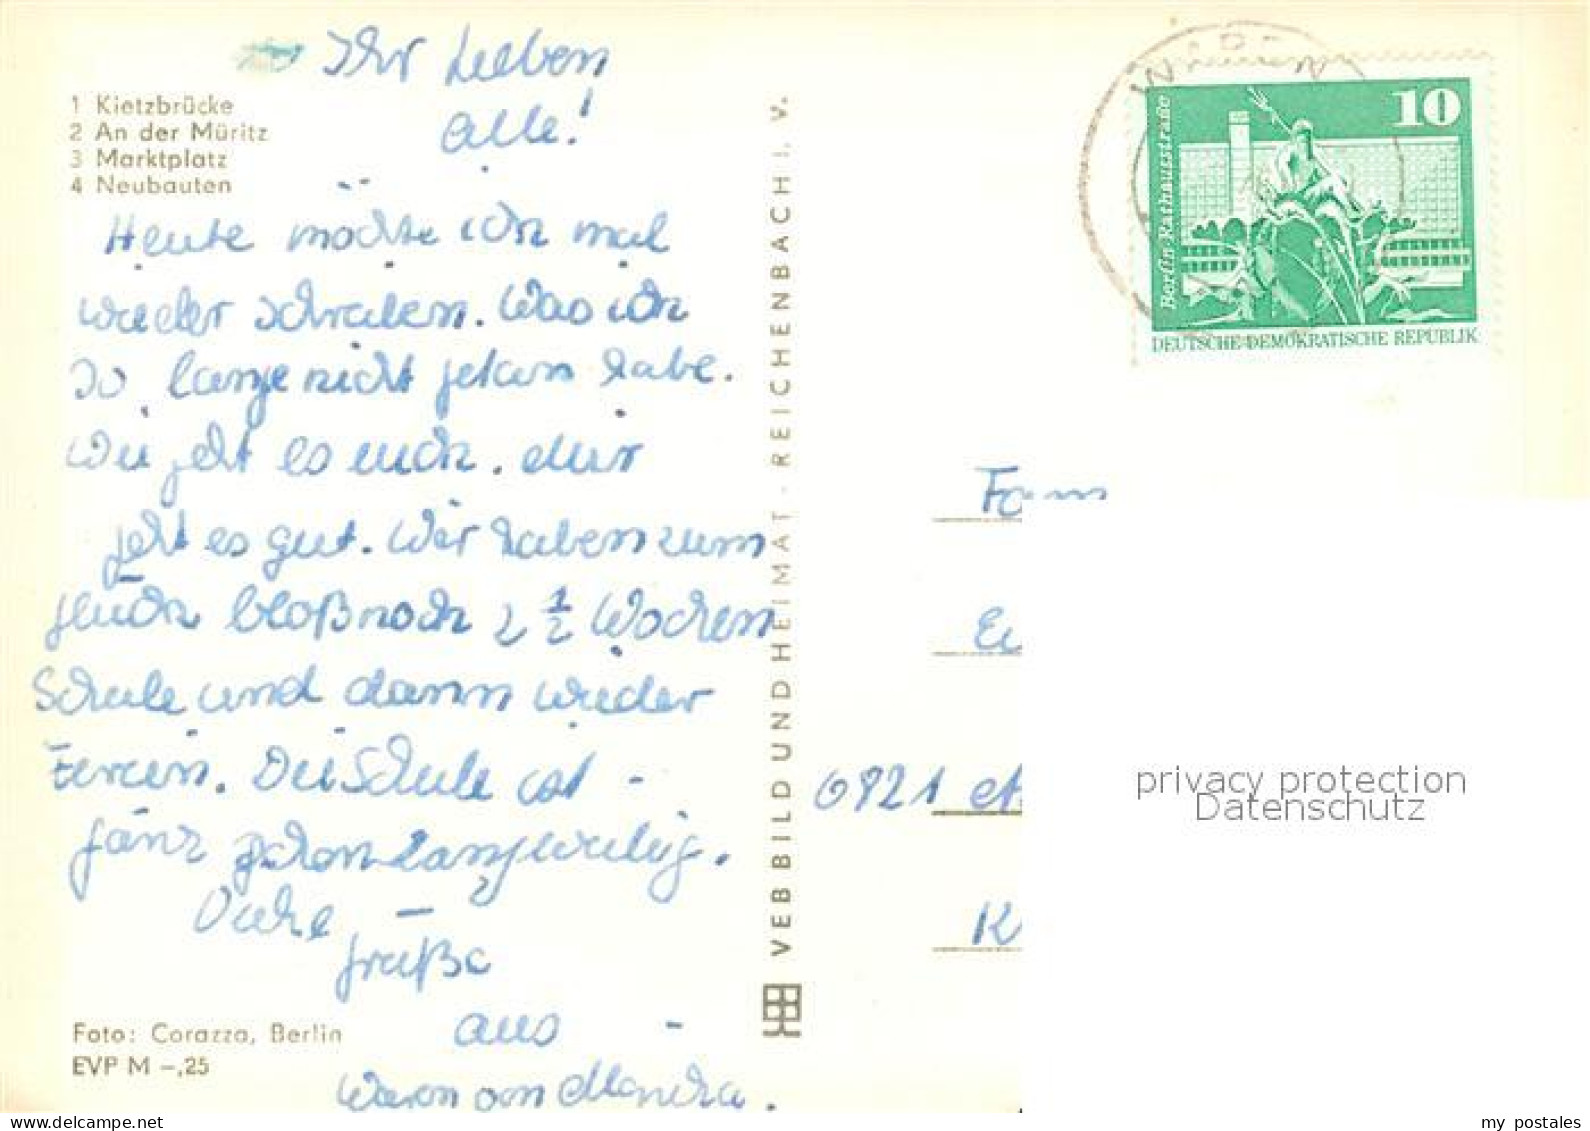 Ihr Lieben
alle!
1 Kietzbrücke
2 An der Müritz
3 Marktplatz
4 Neubauten
Heute möchte ich mal
wieder schreiben. Was ich
so lange nicht jetan habe.
Wie jeht es euch. Mir
jeht es gut. Wir haben zum
jlück bloß noch 2 1/2 Wochen
Schule und dann wieder
Ferien. Die Schule ist
janz schon langweilig.
Viele
jrüße
aus
Waren von Manuela.
Foto: Corazza, Berlin
EVP M -,25
VEB BILD UND HEIMAT · REICHENBACH I. V.
WAREN
10
Berlin Rathausstraße
DEUTSCHE DEMOKRATISCHE REPUBLIK
Fam
6821
K
privacy protection
Datenschutz
my postales